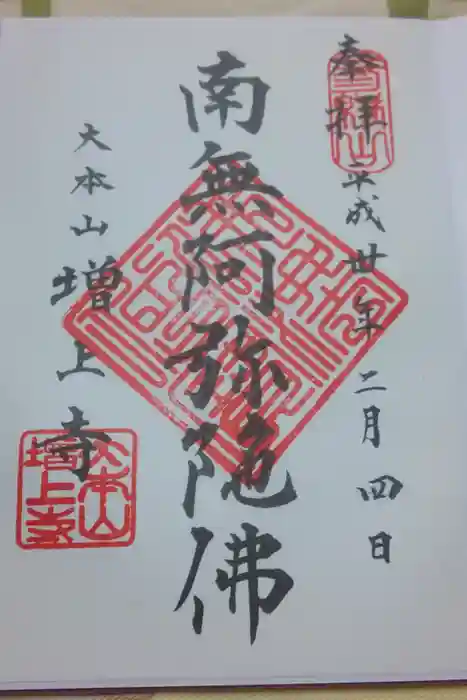 奉拝
平成丗年二月四日
南無阿弥陀佛
大本山
増上寺
大本山
増上寺